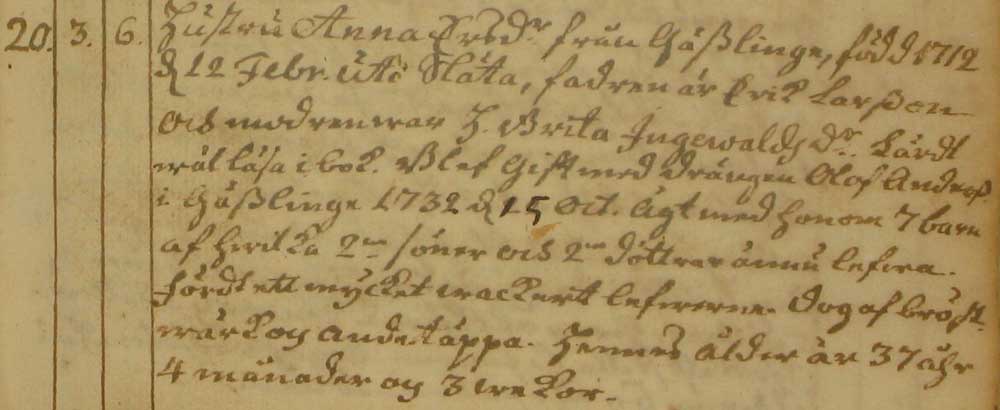 20. 3. 6. Hustru Anna Ersdr från Gäßlinge, född 1712
d 12 Febr. uti Släta, fadren är Erik Larßon
och modren war H. Brita Ingewaldsdr. Lärdt
wäl läsa i bok. Blef Gift med drängen Olof Anderß.
i Gäßlinge 1732 d 15 Oct. Ägt med honom 7 barn
af hwilka 2ne söner och 2ne döttrar ännu lefwa.
Fördt ett mycket wackert lefwerne. Dog af bröst-
wärk og andetäppa. Hennes ålder är 37 åhr
4 månader og 3 wekor.